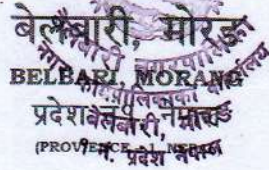 बेलबारी, मोरङ
BELBARI, MORANG
प्रदेश नं. १ नेपाल
(PROVINCE 1, NEPAL)
बेलबारी नगरपालिका
नगर कार्यपालिकाको कार्यालय
बेलबारी, मोरङ
१ नं. प्रदेश नेपाल